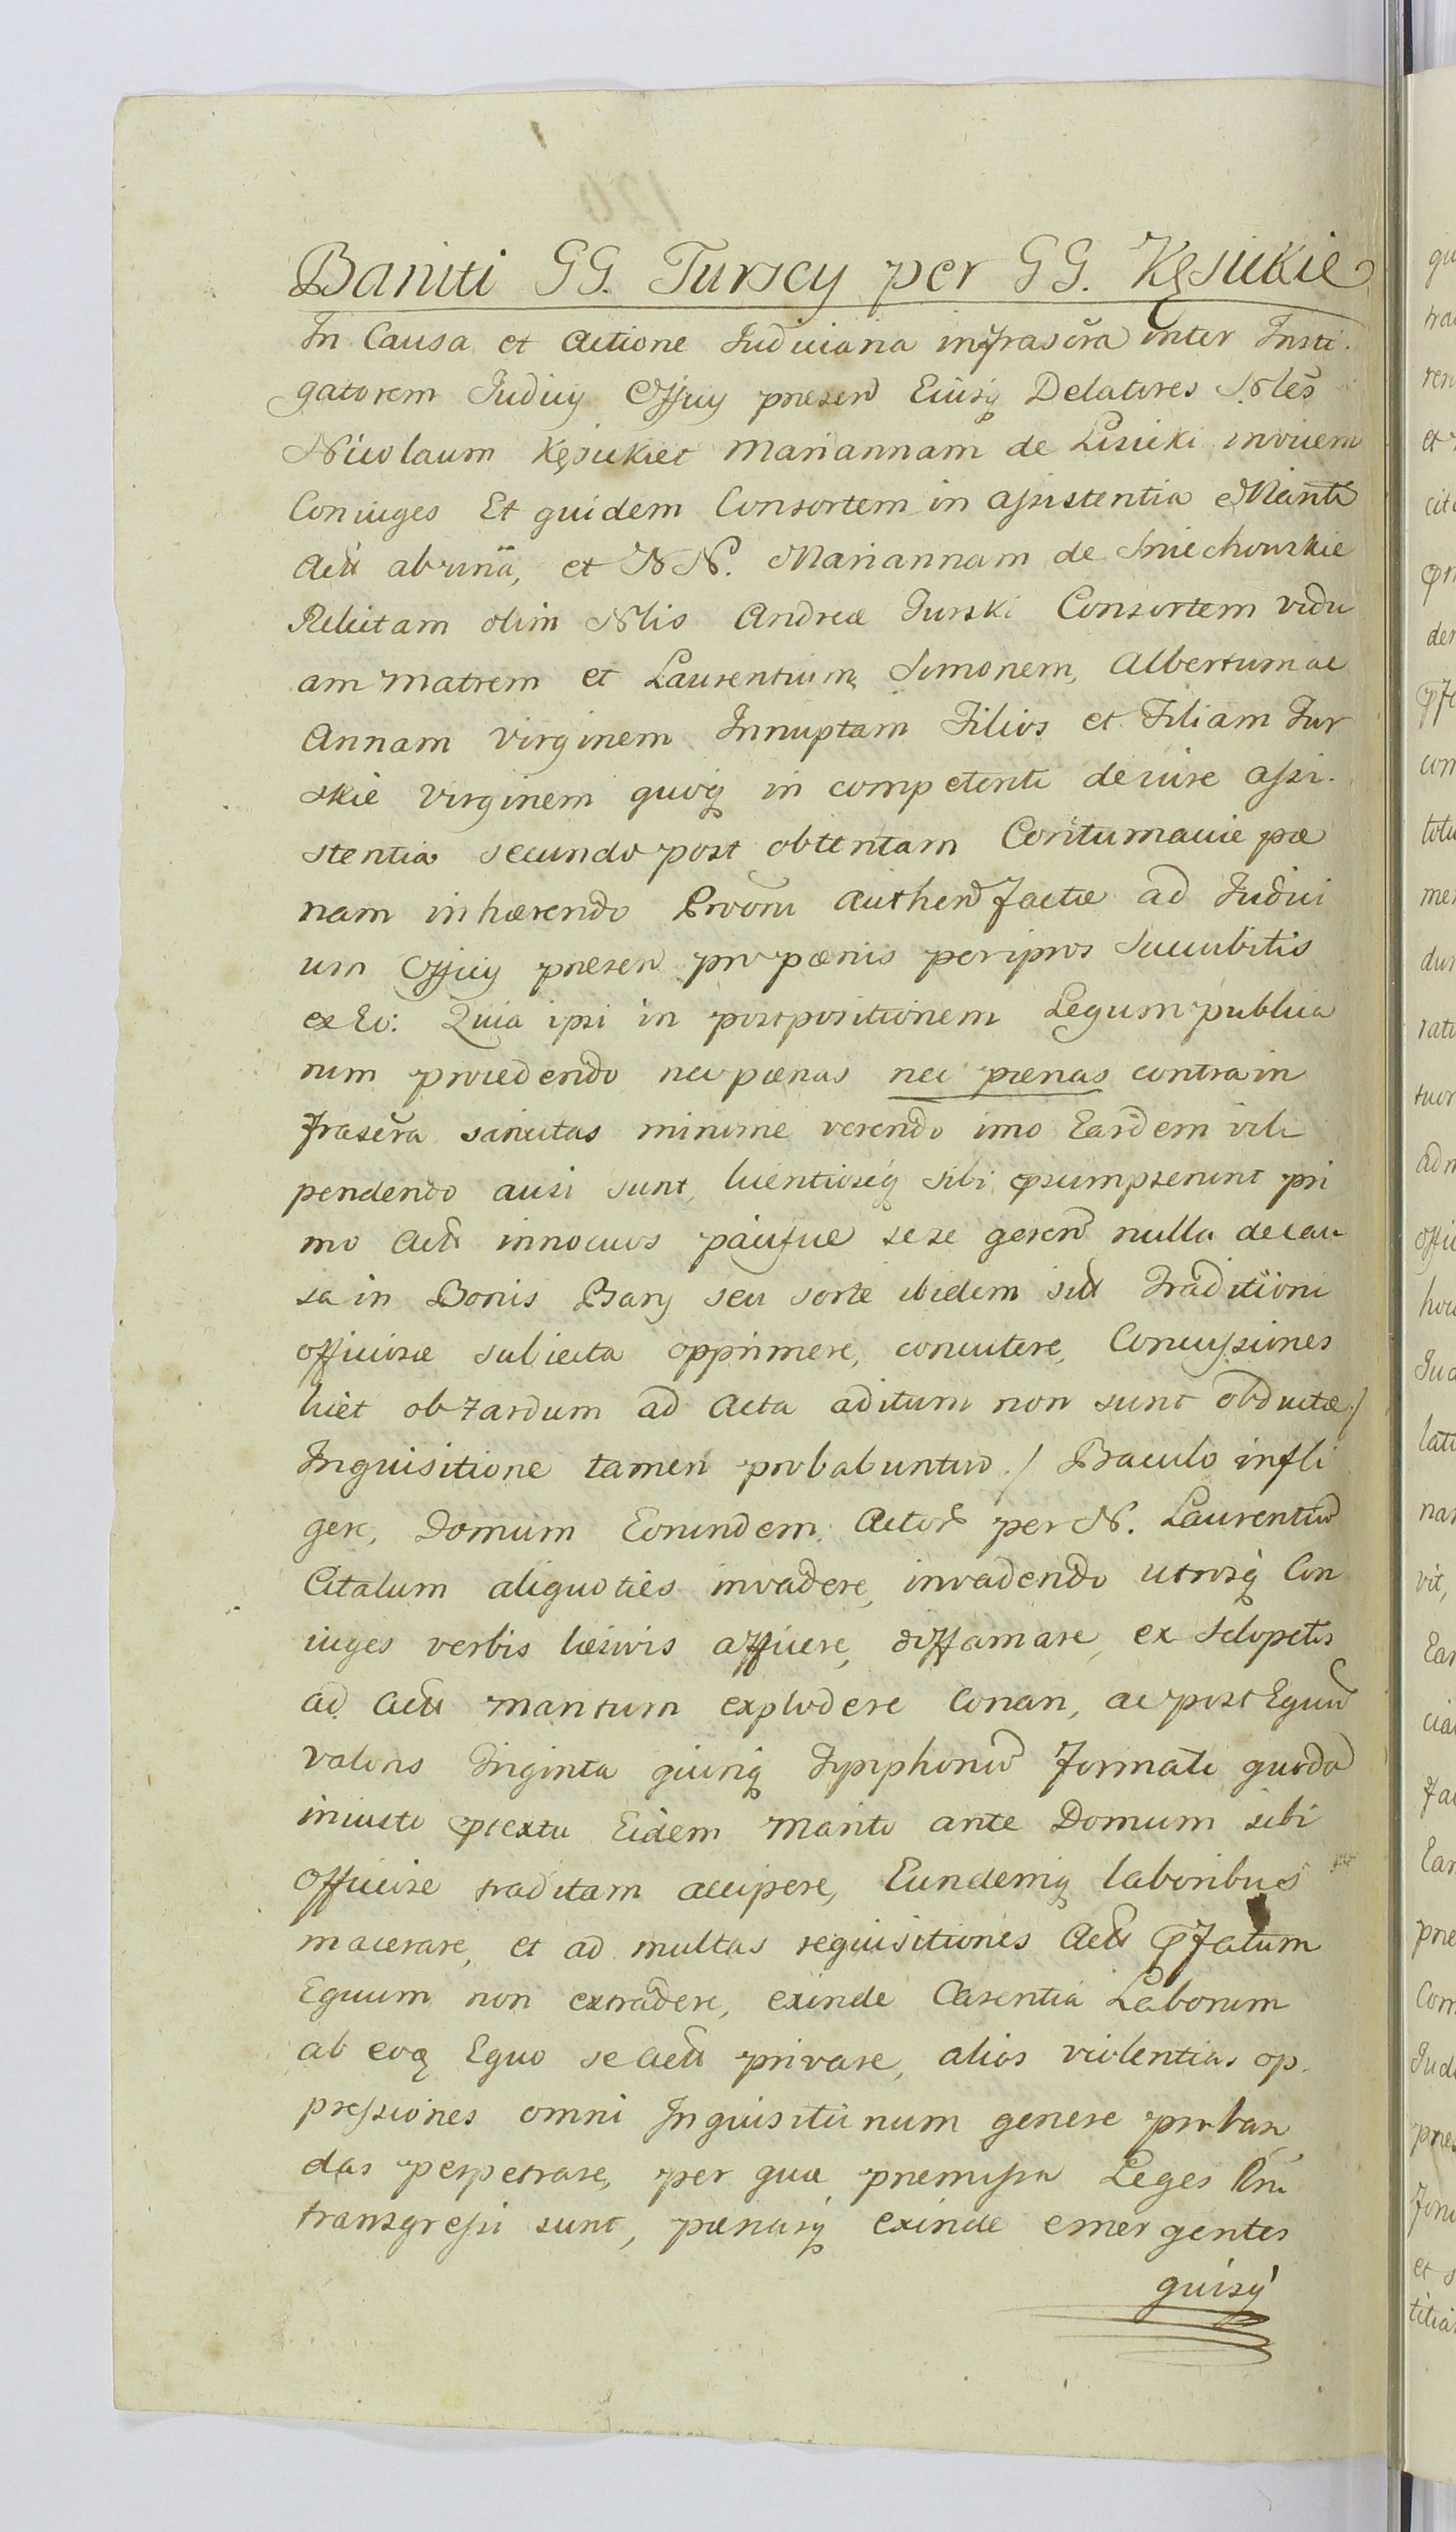 Baniti GG. Turscy per GG. Kęsickie
In Causa et Actione Judiciaria infrascra inter Insti-
gatorem Judicy Officy praesen Eiusq Delatores Nles
Nicolaum Kęsicki et Mariannam de Lisicki invicem
Coniuges Et quidem Consortem in assistentia Mariti
Act ab una, et NN. Mariannam de Smiechowskie
Relictam olim Nlis Andreæ Turski Consortem vidu
am matrem et Laurentium, Simonem, Albertum ac
Annam virginem Innuptam Filios et Filiam Tur
skie virginem quoq in competenti de iure assi-
stentia secundo post obtentam Contumaciæ pæ
nam inhærendo Provom authen factæ ad Judici
um Officy præsen pro pænis per ipsos Succubitis
ex Eo: Quia ipsi in postpositionem Legum publica
rum procedendo nec pænas nec pænas contra in
frascra sancitas minime verendo imo Easdem vili
pendendo ausi sunt, licentioseq sibi psumpserunt pri
mo Act innocuos pacifice sese geren nulla de cau
sa in Bonis Bary seu sorte ibidem sit Traditioni
officiosæ subiecta opprimere, concutere, Concussiones
licet ob tardum ad Acta aditum non sunt obductæ /
Inquisitione tamen probabuntur. / Baculo infli
gere, Domum Eorundem Actor per N. Laurentiu
Citatum aliquoties invadere, invadendo utrosq Con
iuges verbis læsivis afficere, diffamare, ex Sclopetis
ad Act maritum explodere Conari, ac post Equu
valoris Triginta quinq Tympphonu formati quoda
iniusto ptextu Eidem Marito ante Domum sibi
Officiose traditam accipere, Eundemq laboribus
macerare, et ad multas requisitiones Act pfatum
Equum non extradere, exinde Carentia Laborum
ab eoq Equo se Act privare, alias violentias op-
pressiones omni Inquisitionum genere proban
das perpetrare, per quæ præmissa Leges
transgressi sunt, pænasq exinde emergentes
quisq